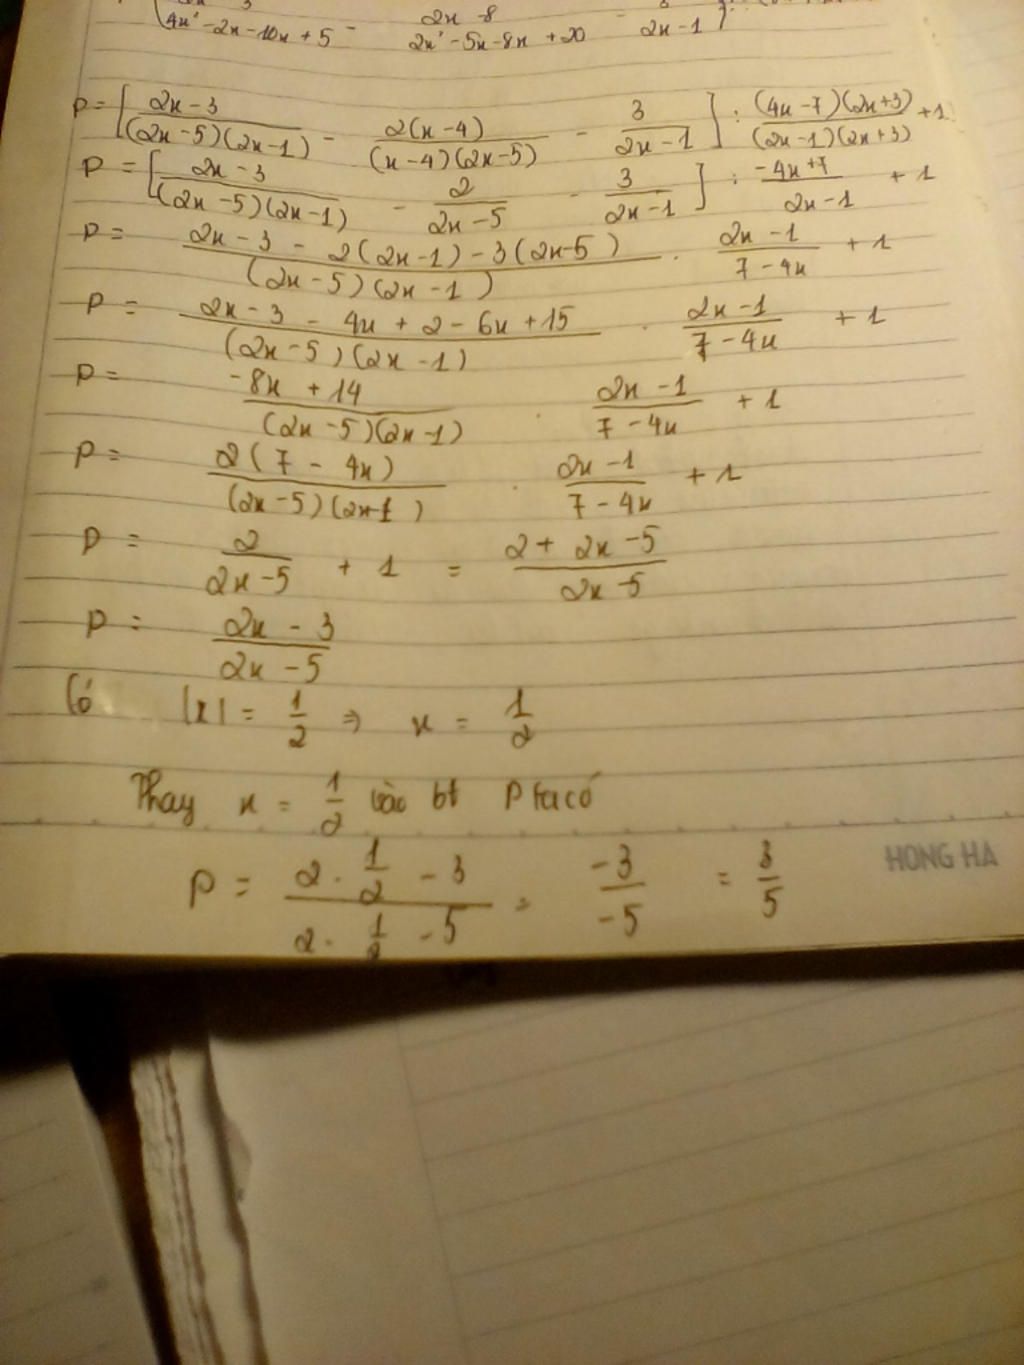 4x² - 2x - 10x + 5 - (2x - 8)/(2x² - 5x - 8x + 20) - 3/(2x - 1)
P = [(2x - 3)/((2x - 5)(2x - 1)) - 2(x - 4)/((x - 4)(2x - 5)) - 3/(2x - 1)] : (4x - 7)(2x + 3)/((2x - 1)(2x + 3)) + 1
P = [(2x - 3)/((2x - 5)(2x - 1)) - 2/(2x - 5) - 3/(2x - 1)] : (-4x + 7)/(2x - 1) + 1
P = (2x - 3 - 2(2x - 1) - 3(2x - 5))/((2x - 5)(2x - 1)) . (2x - 1)/(7 - 4x) + 1
P = (2x - 3 - 4x + 2 - 6x + 15)/((2x - 5)(2x - 1)) . (2x - 1)/(7 - 4x) + 1
P = (-8x + 14)/((2x - 5)(2x - 1)) . (2x - 1)/(7 - 4x) + 1
P = 2(7 - 4x)/((2x - 5)(2x - 1)) . (2x - 1)/(7 - 4x) + 1
P = 2/(2x - 5) + 1 = (2 + 2x - 5)/(2x - 5)
P = (2x - 3)/(2x - 5)
Có |x| = 1/2 => x = 1/2
Thay x = 1/2 vào bt P ta có
P = (2 . 1/2 - 3)/(2 . 1/2 - 5) = -3/-5 = 3/5
HONG HA